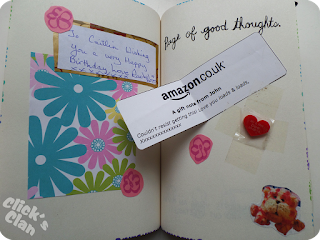 To Caitlin Wishing
you a very Happy
Birthday love
Page of good thoughts.
amazon.co.uk
A gift note from John
Couldn't resist getting this. Love you loads & loads.
Xxxxxxxxxxxxxxx
Click's
Clan